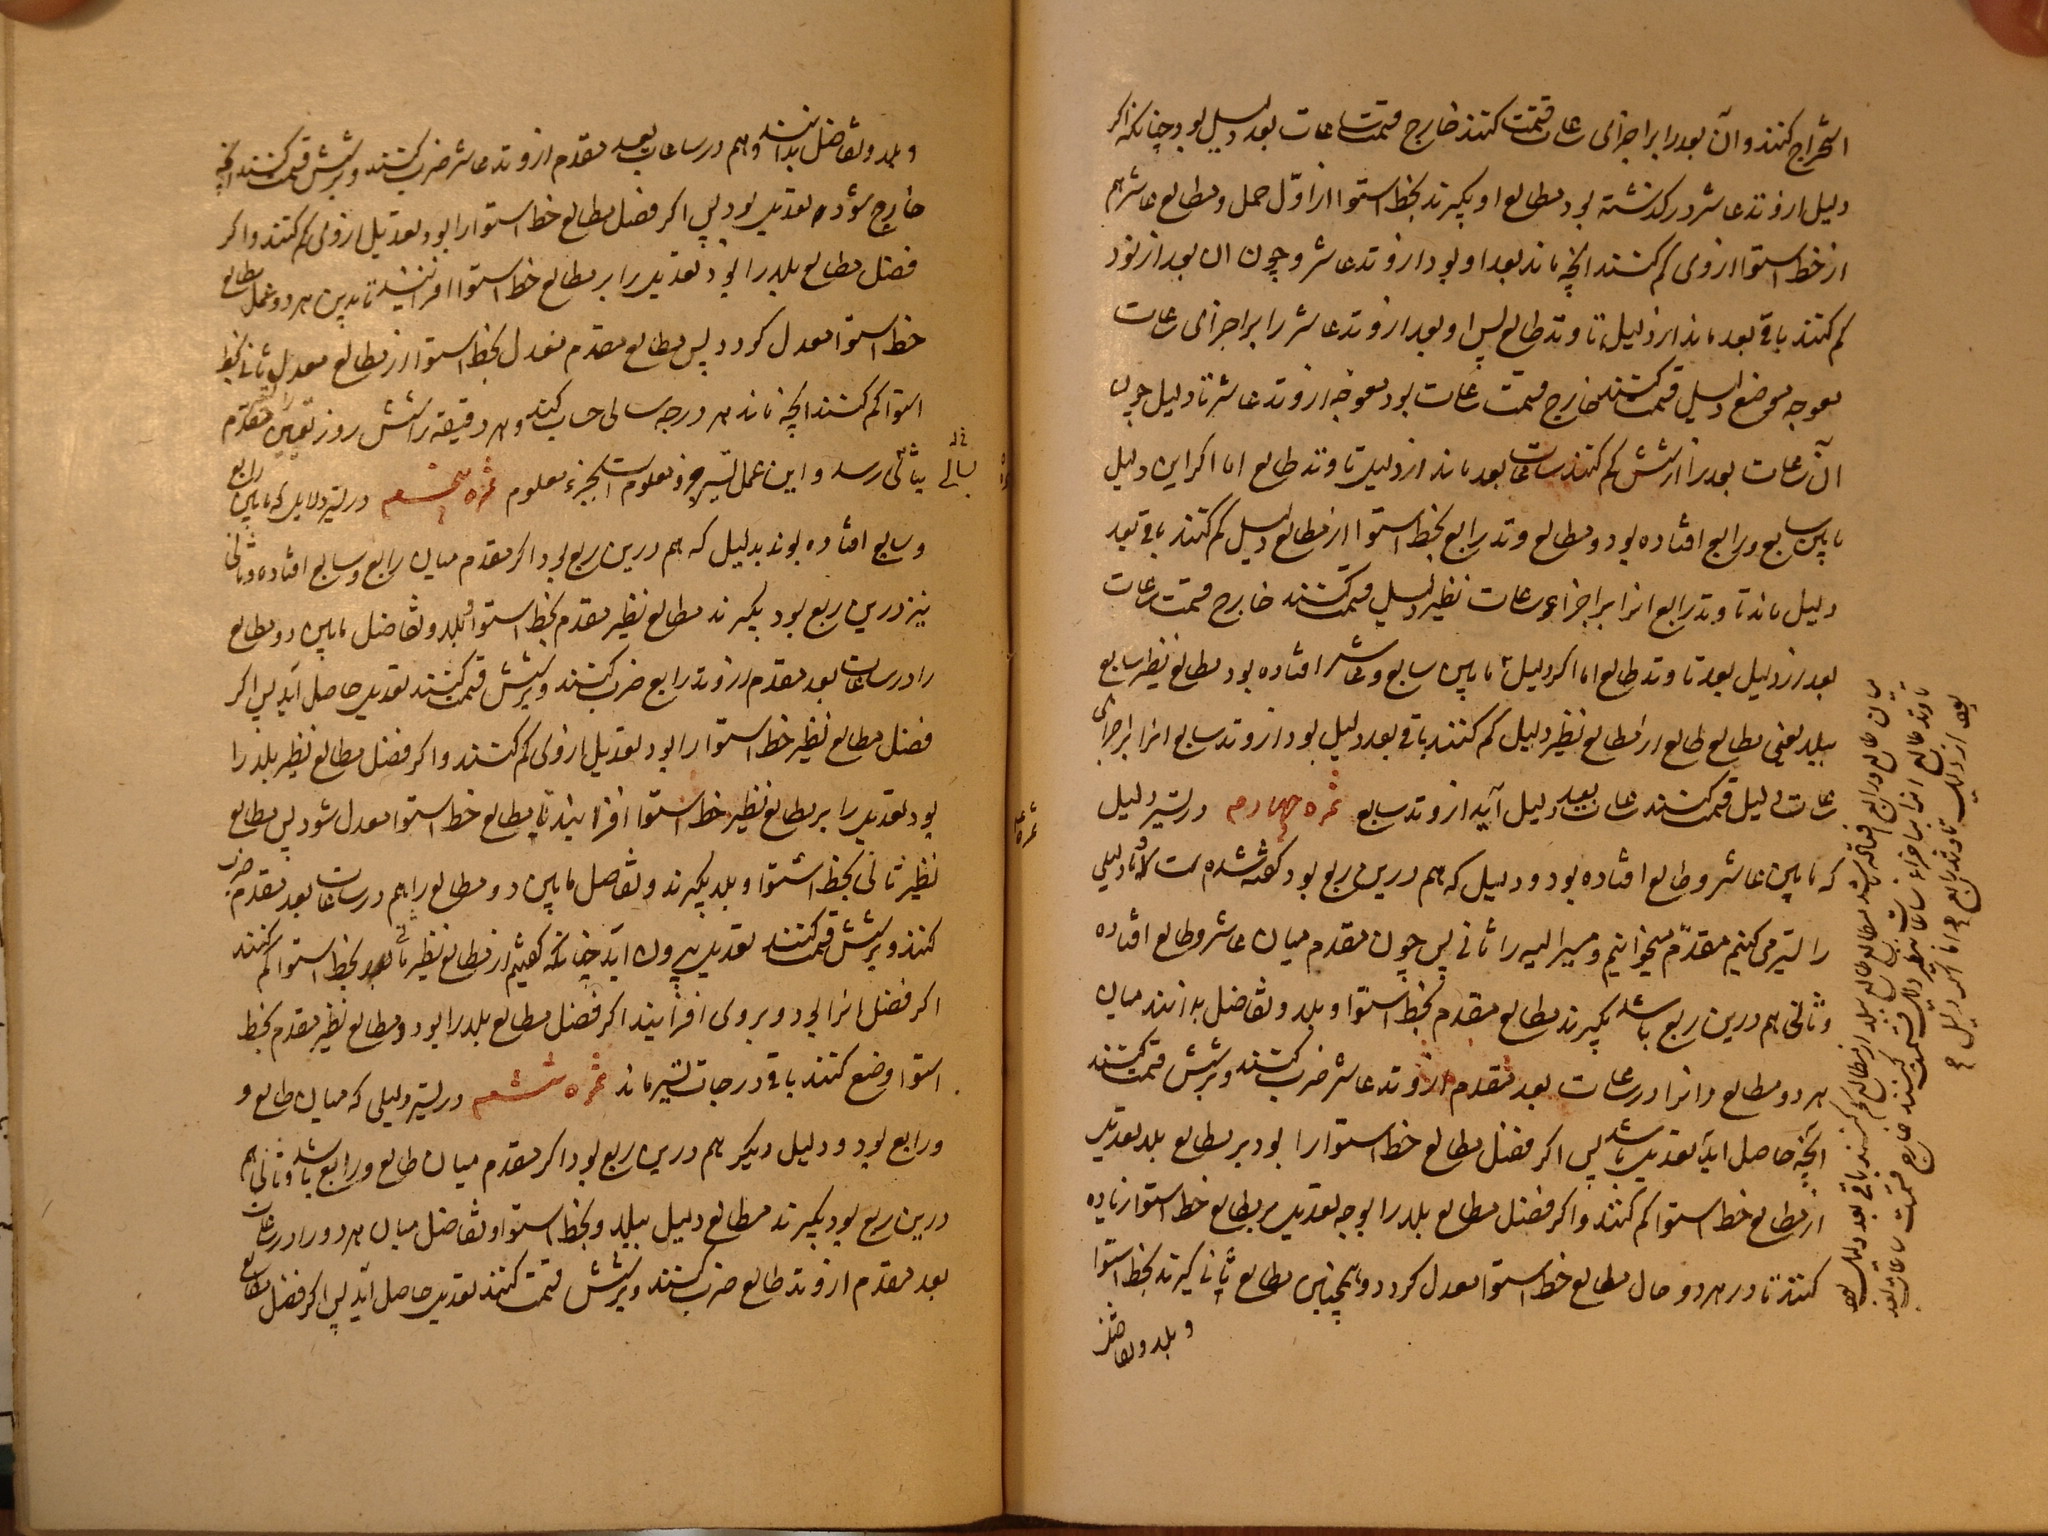 استخراج کنند و آن بعد را بر اجزای ساعات قسمت کنند خارج قسمت ساعات بعد دلیل بود چنانکه اگر
دلیل از وتد عاشر در گذشته بود مطالع او بگیرند بخط استوا از اوّل حمل و مطالع عاشر هم
از خط استوا از وی کم کنند انچه ماند بعد او بود از وتد عاشر و چون ان بعد از نود
کم کنند باقی بعد ماند از دلیل تا وتد طالع پس او بعد از وتد عاشر را بر اجزای ساعات
معوجه موضع دلیل قسمت کنند خارج قسمت ساعات بود معوجه از وتد عاشر تا دلیل چون
آن ساعات بعد را از شش کم کنند ساعات بعد ماند از دلیل تا وتد طالع اما اگر این دلیل
مابین سابع و رابع افتاده بود و مطالع وتد رابع بخط استوا از مطالع دلیل کم کنند باقی بعد
دلیل ماند تا وتد رابع انرا بر اجزاء ساعات نظیر دلیل قسمت کنند خارج قسمت ساعات
بعد از دلیل بعد تا وتد طالع اما اگر دلیل مابین سابع و عاشر افتاده بود مطالع نظیر سابع
ببلد یعنی مطالع طالع از مطالع نظیر دلیل کم کنند باقی بعد دلیل بود از وتد سابع انرا بر اجزای
ساعات دلیل قسمت کنند ساعات بعد دلیل آید از وتد سابع ثمره چهارم در تسیر دلیل
که مابین عاشر و طالع افتاده بود و دلیل که هم درین ربع بود گفته شده است
را تسیر می کنیم مقدّم میخوانیم و مسیر الیه را ثانی پس چون مقدم میان عاشر و طالع افتاده
و ثانی هم درین ربع باشد بگیرند مطالع مقدم بخط استوا و بلد و تفاضل بدانند میان
هر دو مطالع و انرا در ساعات بعد مقدم از وتد عاشر ضرب کنند و بر شش قسمت کنند
آنچه حاصل اید تعدیل باشد پس اگر فضل مطالع خط استوا را بود بر مطالع بلد تعدیل
از مطالع خط استوا کم کنند و اگر فضل مطالع بلد را بود تعدیل بر مطالع خط استوا زیاده
کنند تا در هر دو حال مطالع خط استوا معدل گردد و همچنین مطالع ثانی گیرند بخط استوا
و بلد و تفاضل
میان طالع و رابع افتاده باشد مطالع طالع ببلد از مطالع کم کنند باقی بعد دلیل بود
تا وتد طالع انرا بر اجزاء ساعات نظیر دلیل قسمت کنند خارج قسمت ساعات بعد
بعد از دلیل تا وتد رابع اما اگر دلیل
و بلد و تفاضل بدانند و هم در ساعات بعد مقدم از وتد عاشر ضرب کنند و بر شش قسمت کنند انچه
خارج شود تعدیل بود پس اگر فضل مطالع خط استوا را بود تعدیل از وی کم کنند و اگر
فضل مطالع بلد را بود تعدیل را بر مطالع خط استوا افزایند تا بدین هر دو عمل مطالع
خط استوا معدل گردد پس مطالع مقدم معدل بخط استوا از مطالع معدل ثانی بخط
استوا کم کنند انچه ماند هر درجه سالی حساب کنند و هر دقیقه را شش روز تعیین مقدم
بثانی رسد و این عمل تسیر جزء معلوم است بجزء معلوم ثمره پنجم در تسیر دلایل که مابین رابع
و سابع افتاده بوند بدلیل که هم درین ربع بود اگر مقدم میان رابع و سابع افتاده و ثانی
نیز درین ربع بود بگیرند مطالع نظیر مقدم بخط استوا و بلد و تفاضل مابین دو مطالع
را در ساعات بعد مقدم از وتد رابع ضرب کنند و بر شش قسمت کنند تعدیل حاصل آید پس اگر
فضل مطالع نظیر خط استوا را بود تعدیل از وی کم کنند و اگر فضل مطالع نظیر بلد را
بود تعدیل را بر مطالع نظیر خط استوا افزایند تا مطالع خط استوا معدل شود پس مطالع
نظیر ثانی بخط استوا و بلد بگیرند و تفاضل مابین دو مطالع را هم در ساعات بعد مقدم ضرب
کنند و بر شش قسمت کنند تعدیل بیرون آید چنانکه گفتیم از مطالع نظیر ثانی بخط استوا کم کنند
اگر فضل انرا بود و بر وی افزایند اگر فضل مطالع بلد را بود و مطالع نظیر مقدم بخط
استوا وضع کنند باقی درجات تسیر ماند ثمره ششم در تسیر دلیلی که میان طالع و
و رابع بود و دلیل دیگر هم درین ربع بود اگر مقدم میان طالع و رابع باشد و ثانی هم
درین ربع بود بگیرند مطالع دلیل ببلد و بخط استوا و تفاضل میان هر دو را در ساعات
بعد مقدم از وتد طالع ضرب کنند و بر شش قسمت کنند تعدیل حاصل آید پس اگر فضل مطالع